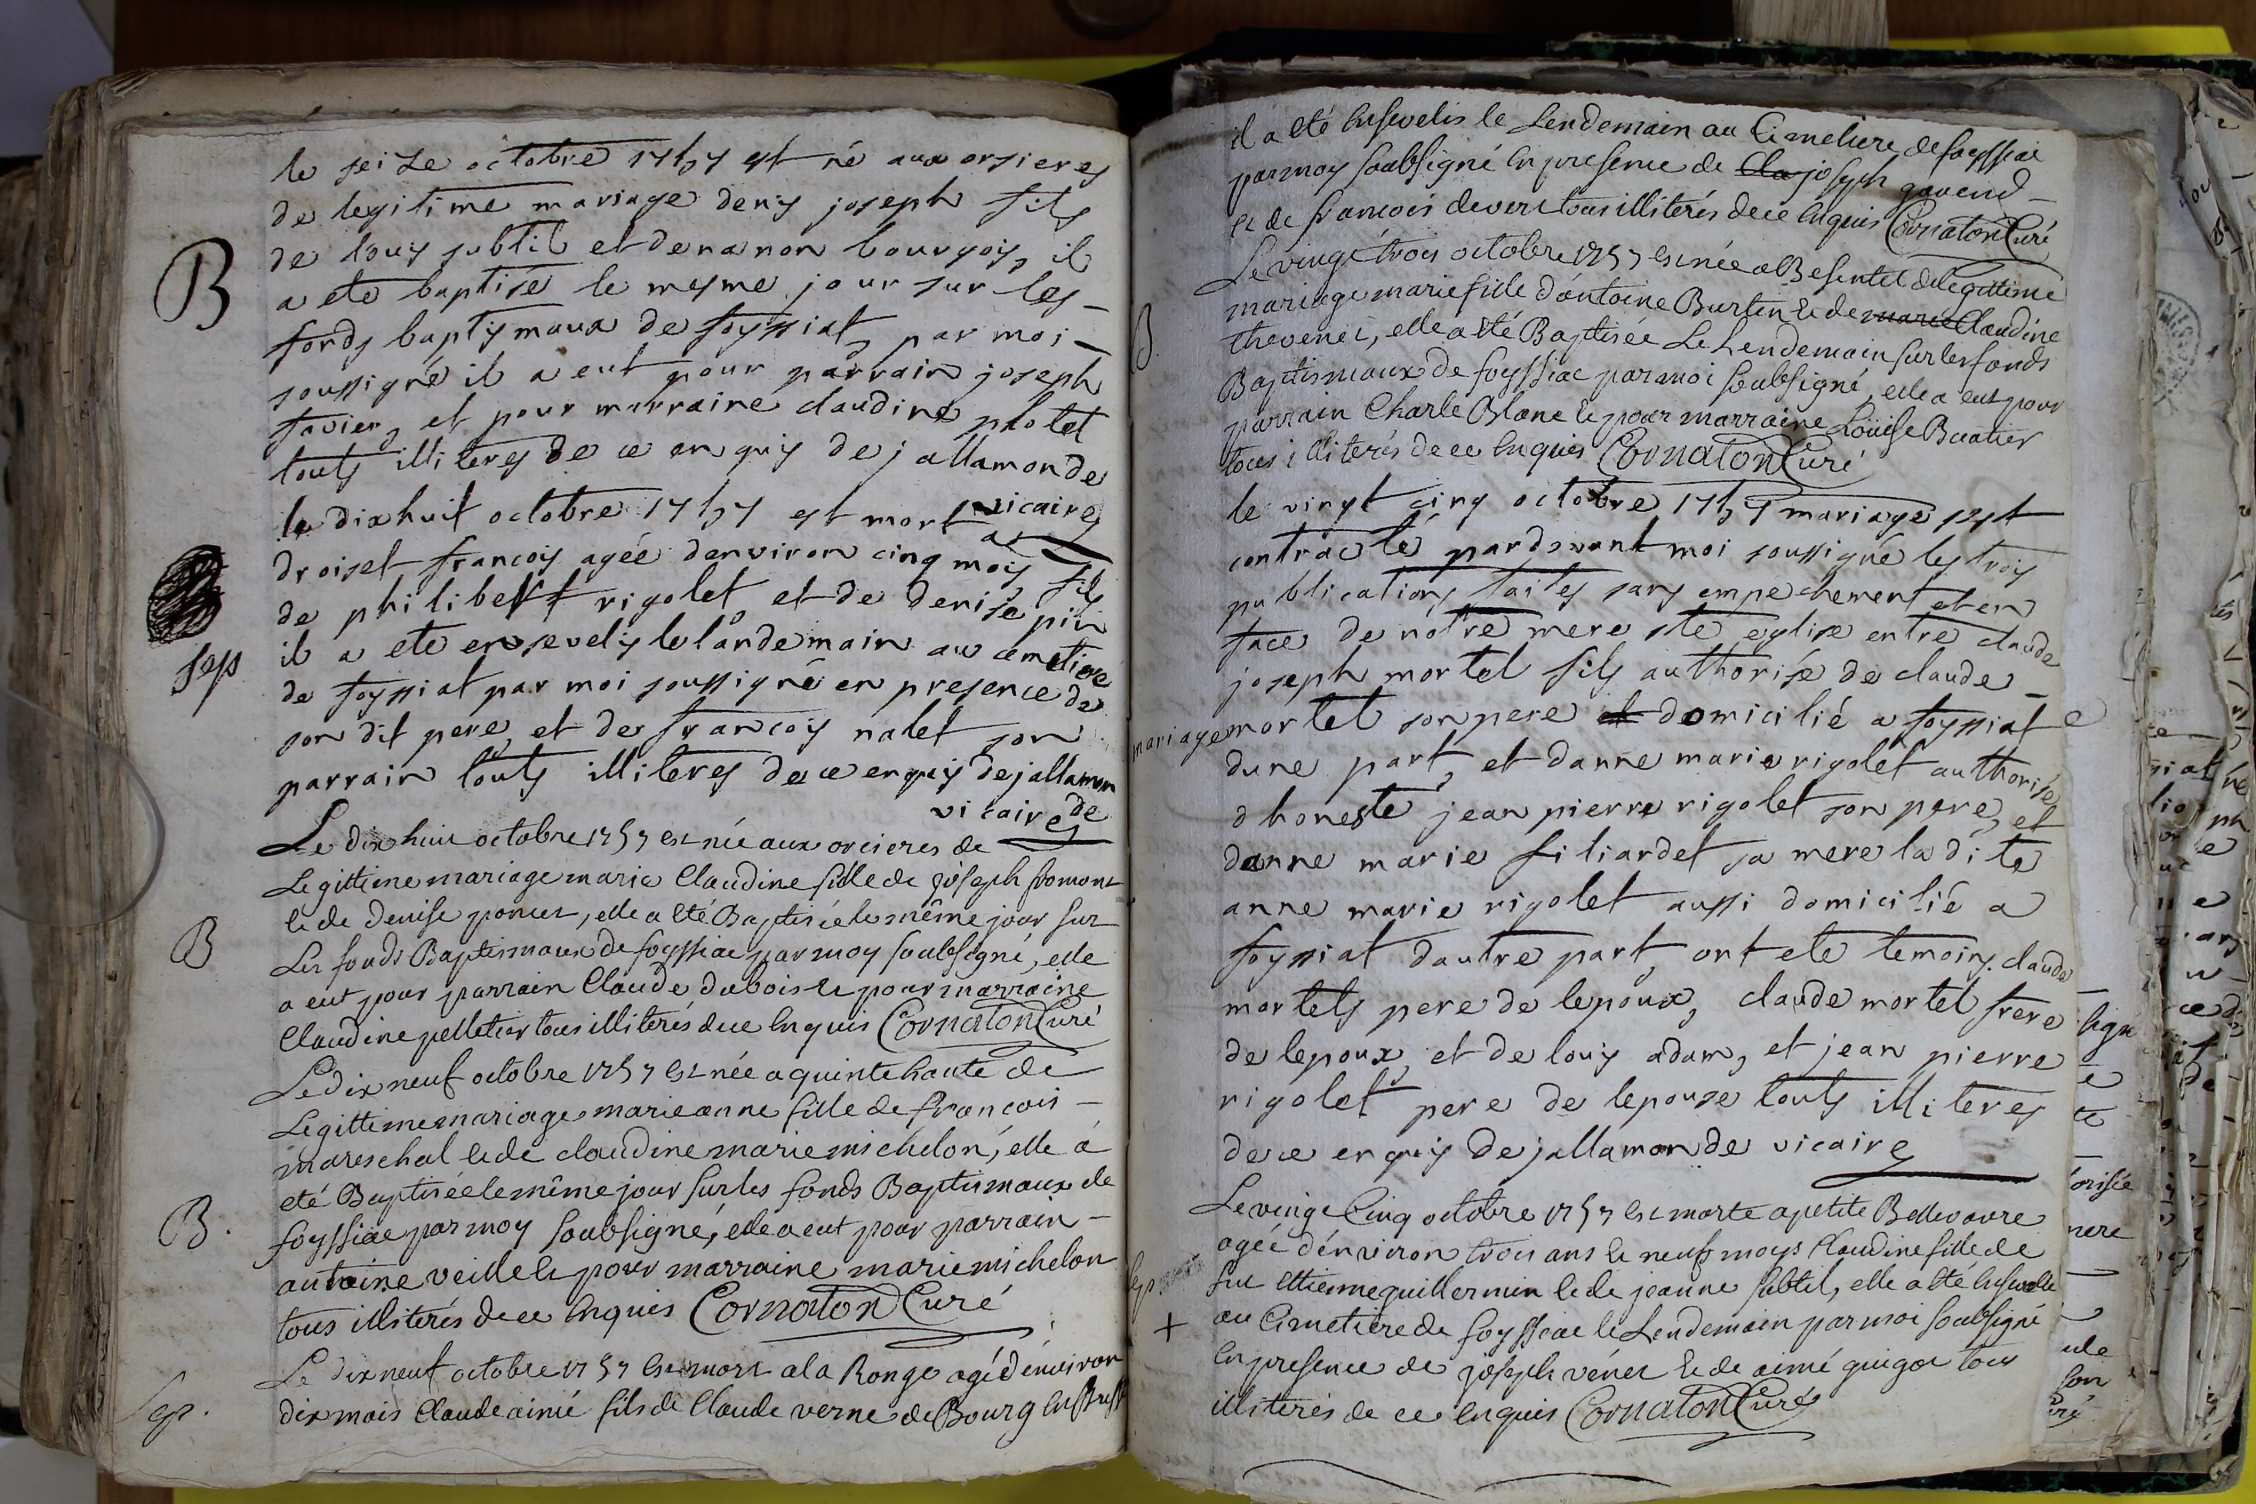 le seize octobre 1757 est né aux orsieres
de legitime mariage denis joseph fils
de louis subtil et de nanon bourgois, il
B
a ete baptisé le mesme jour sur les
fonds baptismaux de foyssiat, par moi
soussigné il a eut pour parrain joseph
favier, et pour marraine claudine photet
touts illiteres de ce enquis dejallamonde
vicaire
le dixhuit octobre 1757 est mort a
droiset francois agée denviron cinq mois fils
de philibert rigolet, et de denise pin
Sep
il a ete ensevelis le landemain au cemetiere
de foyssiat par moi soussigné en presence de
son dit pere, et de francois nalet son
parrain touts illiteres de ce enquis dejallamon
de
vicaire
Le dix huit octobre 1757 est née aux orcieres de
Legittime mariage marie Claudine fille de joseph fromont
B
et de denise poncet, elle a eté Baptisée le même jour sur
Les fonds Baptismaux de foyssiac par moy soubsigné, elle
a eut pour parrain Claude dubois et pour marraine
Claudine pelletier tous illiterés de ce Enquis Cornaton Curé
Le dix neuf octobre 1757 est née a quinte haute de
Legittime mariage marie anne fille de françois
mareschal et de claudine marie michelon, elle á
eté Baptisée le même jour sur les fonds Baptismaux de
B.
foyssiac par moy soubsigné, elle a eut pour parrain
antoine veille et pour marraine marie michelon
tous illiterés de ce Enquis Cornaton Curé
Le dix neuf octobre 1757 est mort a la Ronge agé d'environ
Sep.
dix mois Claude aimé fils de Claude verne de Bourg En Bresse
il a eté Ensevelis le Lendemain au Cimetiere de foyssiac
par moy soubsigné En presence de Cla joseph gavend
et de francois devert tous illiterés de ce Enquis Cornaton Curé
Le vingt trois octobre 1757 est née a Besentet de Legittime
mariage marie fille d'antoine Burtin et de marie Claudine
B.
thevenet, elle a eté Baptisée Le Lendemain sur les fonds
Baptismaux de foyssiac par moi soubsigné, elle a eut pour
parrain Charle Blanc et pour marraine Loüise Buatier
tous illiterés de ce Enquis Cornaton Curé
le vingt cinq octobre 1757 mariage s'est
contracté pardevant moi soussigné les trois
publications faites sans empechement et en
face de notre mere ste eglise entre claude
joseph mortel fils authorisé de claude
mariage
mortel son pere et domicilié a foyssiat
dune part, et danne marie rigolet authorisée
d honeste jean pierre rigolet son pere, et
danne marie filiardet sa mere la dite
anne marie rigolet aussi domicilié a
foyssiat dautre part, ont ete temoins claude
mortels pere de lepoux, claude mortel frere
de lepoux, et de louis adam, et jean pierre
rigolet pere de lepouse touts illiteres
de ce enquis dejallamonde vicaire
Le vingt Cinq octobre 1757 est morte a petite Bellevavre
agée d'environ trois ans et neufs moys Claudine fille de
Sep
fut Ettienne guillermin et de jeanne subtil, elle a eté Ensevelie
+
au Cimetiere de foyssiac le Lendemain par moi soubsigné
En presence de joseph vénet et de aimé guigoe tous
illiterés de ce Enquis Cornaton Curé